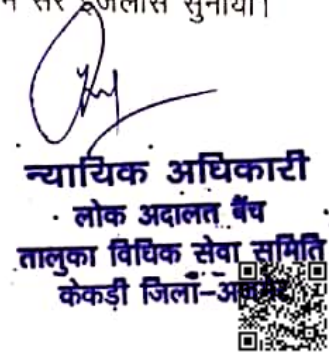 सुनाया।
न्यायिक अधिकारी
लोक अदालत बैंच
तालुका विधिक सेवा समिति
केकड़ी जिला-अजमेर